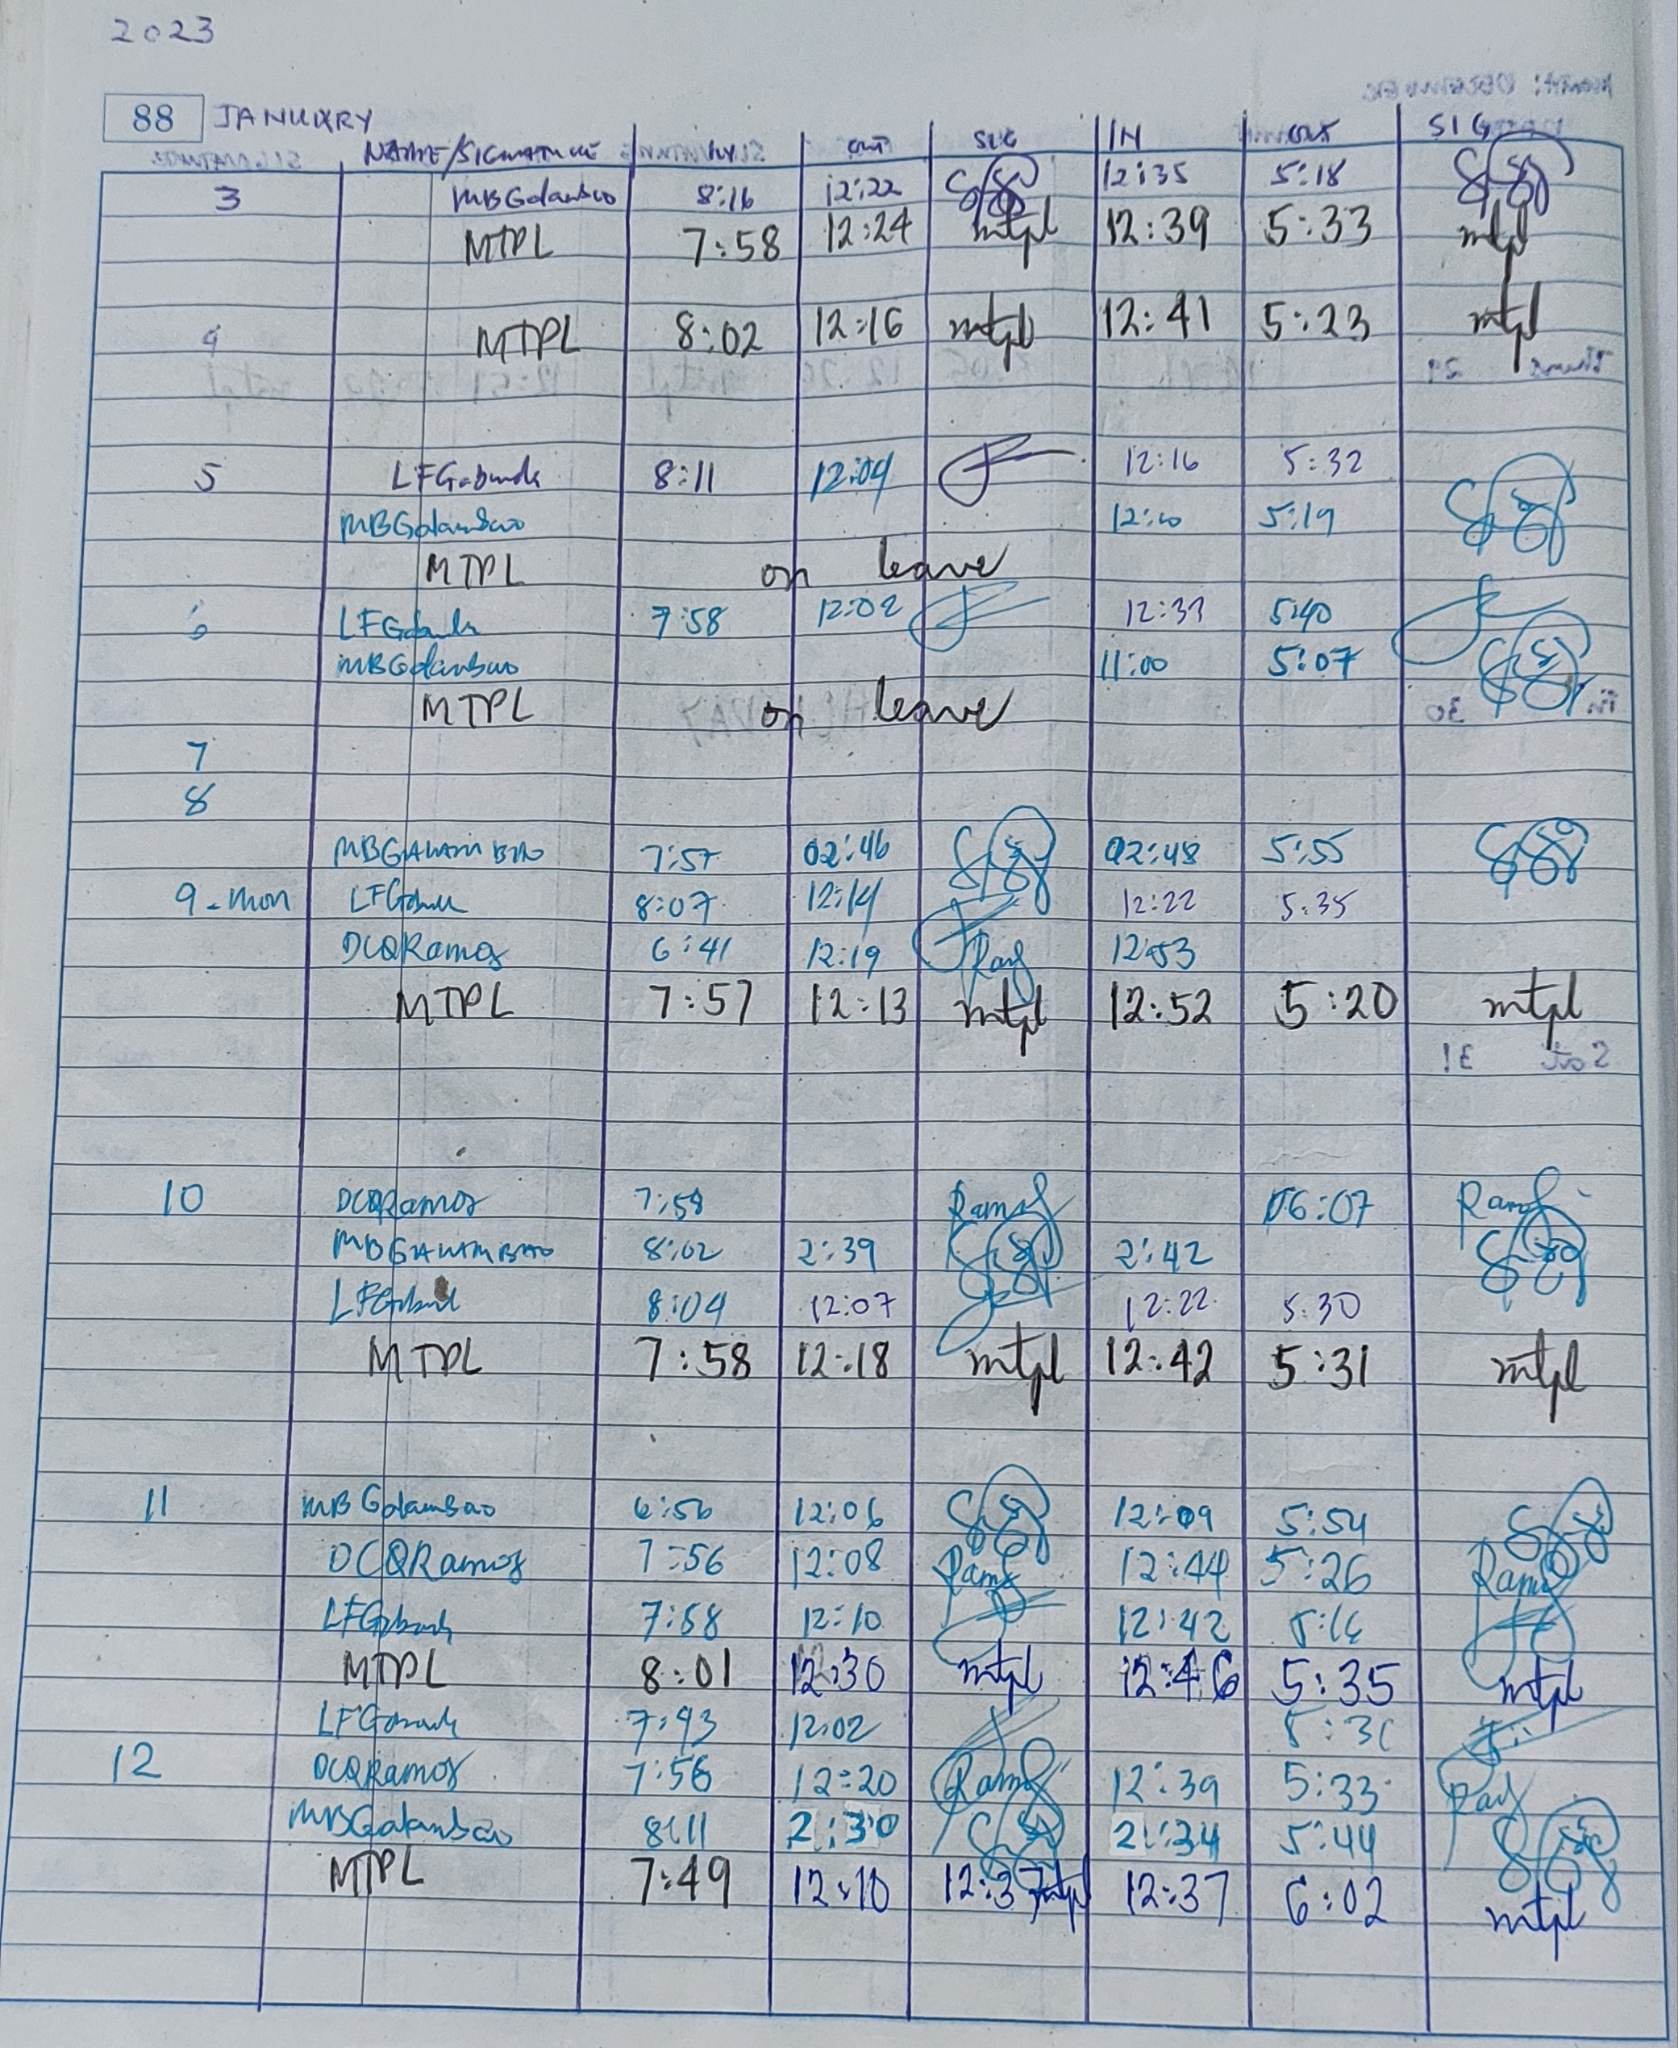 2023
88 JANUARY
NAME/SIGNATURE IN OUT SIG IN OUT SIG
3 MBGalambao 8:16 12:22 12:35 5:18
MTPL 7:58 12:24 mtpl 12:39 5:33 mtpl
4 MTPL 8:02 12:16 mtpl 12:41 5:23 mtpl
5 8:11 12:04 12:16 5:32
MBGalambao 12:10 5:19
MTPL on leave
6 7:58 12:02 12:33 5:40
MBGalambao 11:00 5:07
MTPL on leave
7
8
MBGALAMBAO 7:57 02:46 02:48 5:55
9-mon 8:07 12:14 12:22 5:35
DCQRamos 6:41 12:19 12:53
MTPL 7:57 12:13 mtpl 12:52 5:20 mtpl
10 DCQRamos 7:58 06:07
MBGALAMBAO 8:02 2:39 2:42
8:04 12:07 12:22 5:30
MTPL 7:58 12:18 mtpl 12:42 5:31 mtpl
11 MBGalambao 6:56 12:06 12:09 5:54
DCQRamos 7:56 12:08 12:44 5:26
7:58 12:10 12:42
MTPL 8:01 12:30 mtpl 12:46 5:35 mtpl
12:02
12 DCQRamos 7:56 12:20 12:39 5:33
MBGalambao 8:11 2:30 2:34 5:44
MTPL 7:49 12:10 12:37 mtpl 12:37 6:02 mtpl